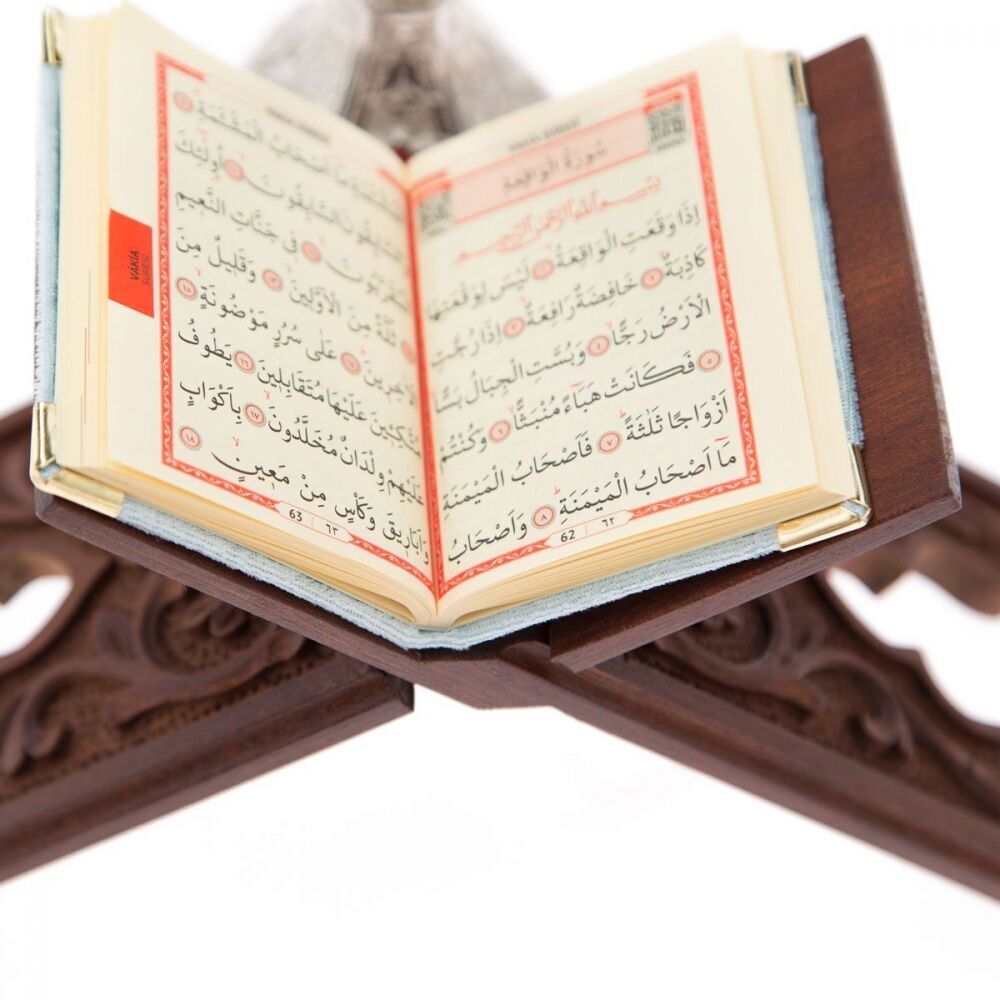 سُورَةُ الْوَاقِعَةِ
بِسْمِ اللّٰهِ الرَّحْمٰنِ الرَّحِيمِ
اِذَا وَقَعَتِ الْوَاقِعَةُ ۝١ لَيْسَ لِوَقْعَتِهَا
كَاذِبَةٌ ۝٢ خَافِضَةٌ رَافِعَةٌ ۝٣ اِذَا رُجَّتِ
الْاَرْضُ رَجًّا ۝٤ وَبُسَّتِ الْجِبَالُ بَسًّا
۝٥ فَكَانَتْ هَبَٓاءً مُنْبَثًّا ۝٦ وَكُنْتُمْ
اَزْوَاجًا ثَلٰثَةً ۝٧ فَاَصْحَابُ الْمَيْمَنَةِ
مَٓا اَصْحَابُ الْمَيْمَنَةِ ۝٨ وَاَصْحَابُ
62 | ٦٢
مَٓا اَصْحَابُ الْمَشْـَٔمَةِ
السَّابِقُونَ ۝١٠ اُو۬لٰٓئِكَ
الْمُقَرَّبُونَ ۝١١ فِي جَنَّاتِ النَّعِيمِ
ثُلَّةٌ مِنَ الْاَوَّلِينَ ۝١٣ وَقَلِيلٌ مِنَ
الْاٰخِرِينَ ۝١٤ عَلٰى سُرُرٍ مَوْضُونَةٍ ۝١٥
مُتَّكِـ۪ٔينَ عَلَيْهَا مُتَقَابِلِينَ ۝١٦ يَطُوفُ
عَلَيْهِمْ وِلْدَانٌ مُخَلَّدُونَ ۝١٧ بِاَكْوَابٍ
وَاَبَارِيقَ وَكَأْسٍ مِنْ مَعِينٍ ۝١٨
63 | ٦٣
VÂKIA
SURESİ